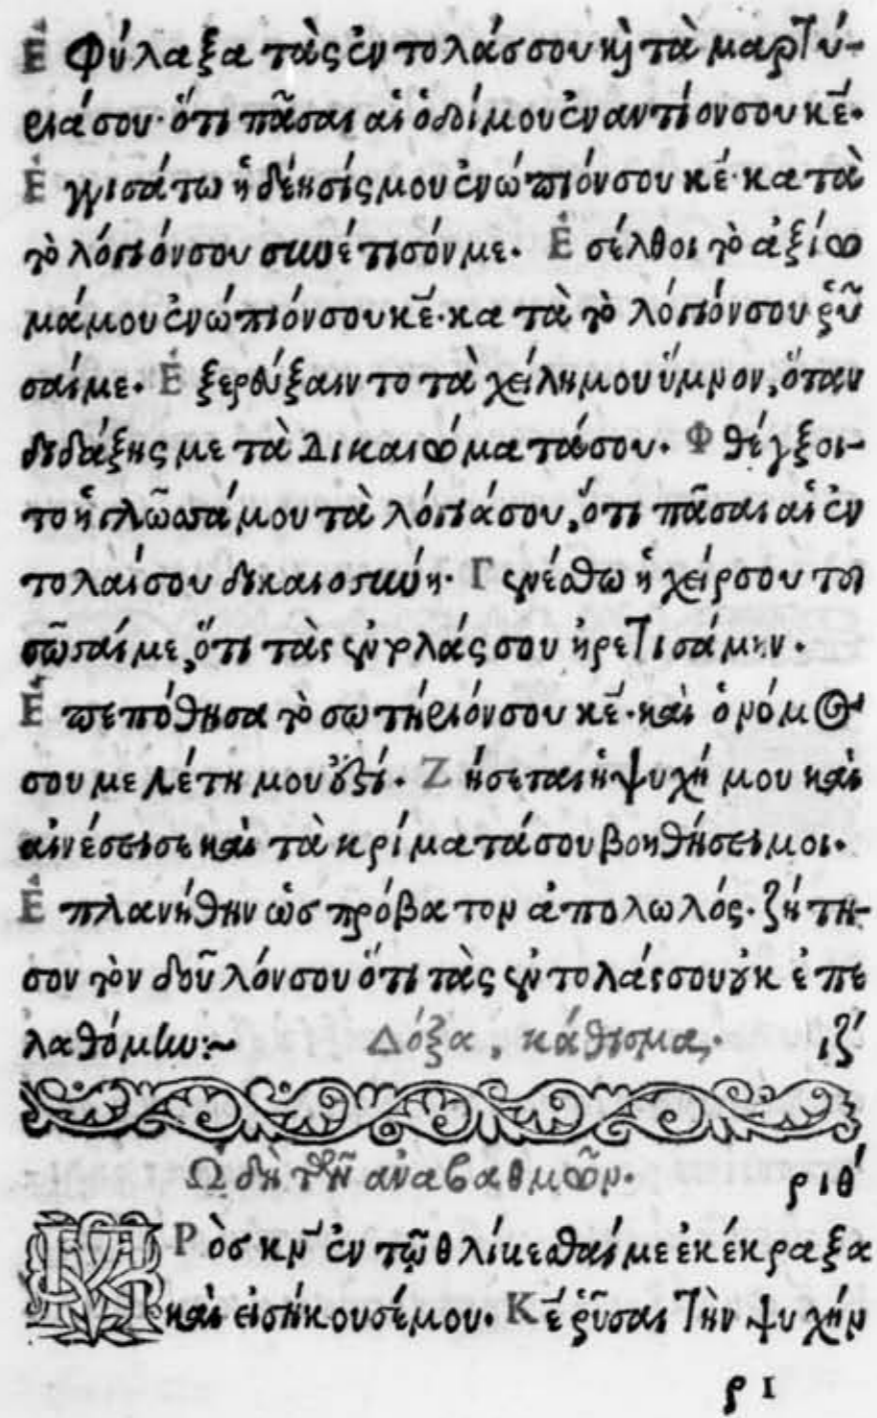 Ἐ φύλαξα τὰς ἐντολάσσου κὶ τὰ μαρτύ-
ριάσου· ὅτι πᾶσαι αἱ ὁδοίμου ἐναντίονσου κε̅.
Ἐ γγισάτω ἡ δέησίς μου ἐνώπιόνσου κέ· κατὰ
τὸ λόγιόνσου συνέτισόν με. Ἐ σέλθοι τὸ ἀξίω
μάμου ἐνώπιόνσου κε̅· κατὰ τὸ λόγιόνσου ῥῦ
σαίμε. Ἐ ξερεύξαιντο τὰ χείλημου ὕμνον, ὅταν
διδάξῃς με τὰ Δικαιώματάσου. Φ θέγξοι-
το ἡ γλῶσσάμου τὰ λόγιάσου, ὅτι πᾶσαι αἱ ἐν
τολαίσου δικαιοσύνη. Γ ενέσθω ἡ χείρσου τοῦ
σῶσαίμε, ὅτι τὰς ἐντολάς σου ᾑρετισάμην.
Ἐ πεπόθησα τὸ σωτήριόνσου κε̅· καὶ ὁ νόμος
σου μελέτη μου ἐστί. Ζ ήσεται ἡ ψυχή μου καὶ
αἰνέσεισε καὶ τὰ κρίματάσου βοηθήσειμοι.
Ἐ πλανήθην ὡς πρόβατον ἀπολωλός· ζήτη-
σον τὸν δοῦλόνσου ὅτι τὰς ἐντολάςσου οὐκ ἐπε
λαθόμην:~ Δόξα, κάθισμα, ιζ′
Ὠ δὴ τῶν ἀναβαθμῶν. ριθ′
Π Ρ ὸσ κν̅ ἐν τῷ θλίβεσθαίμε ἐκέκραξα
καὶ εἰσήκουσέμου. Κ ε̅ ῥῦσαι τὴν ψυχήν
ρ ι